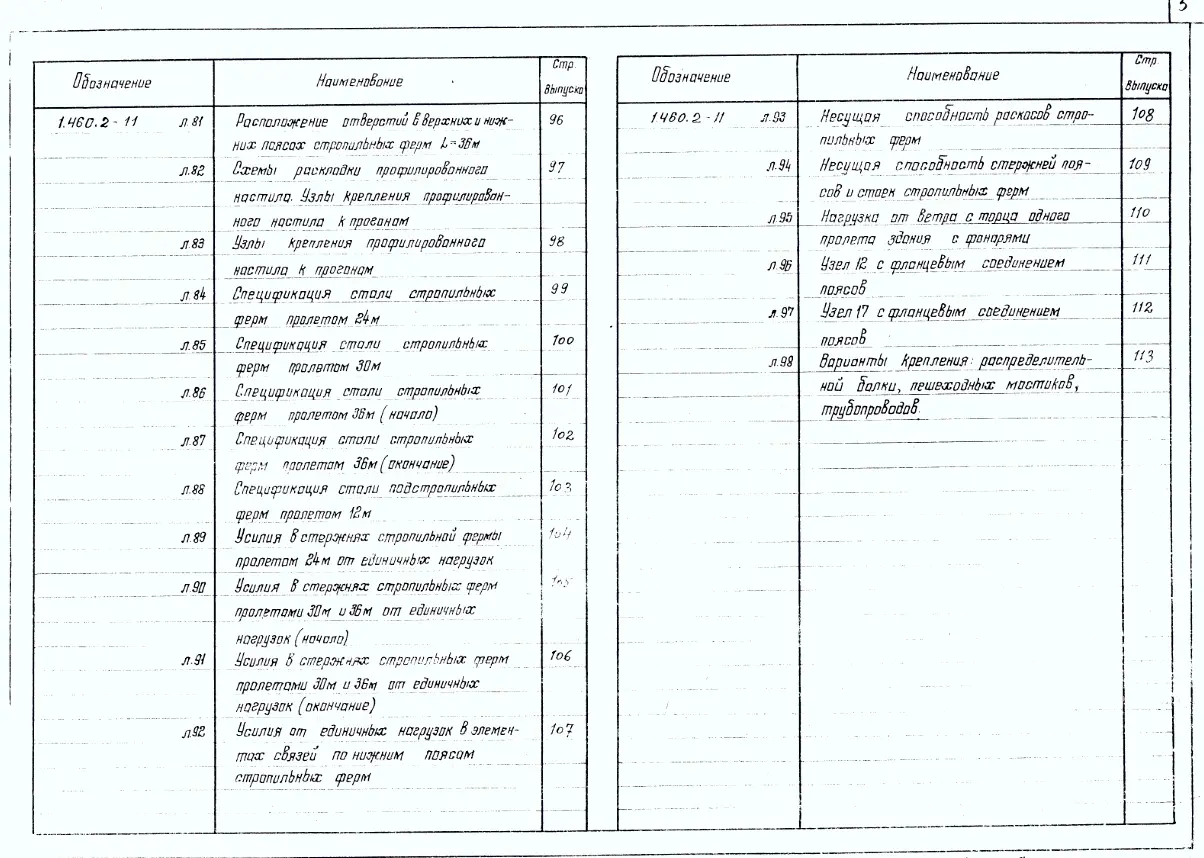 3
Обозначение Наименование Стр. Выпуска
1.460.2-11 л.81 Расположение отверстий в верхних и ниж- 96
них поясах стропильных ферм L=36м
л.82 Схемы раскладки профилированного 97
настила. Узлы крепления профилирован-
ного настила к прогонам
л.83 Узлы крепления профилированного 98
настила к прогонам
л.84 Спецификация стали стропильных 99
ферм пролетом 24м
л.85 Спецификация стали стропильных 100
ферм пролетом 30м
л.86 Спецификация стали стропильных 101
ферм пролетом 36м (начало)
л.87 Спецификация стали стропильных 102
ферм пролетом 36м (окончание)
л.88 Спецификация стали подстропильных 103
ферм пролетом 12м
л.89 Усилия в стержнях стропильной фермы 104
пролетом 24м от единичных нагрузок
л.90 Усилия в стержнях стропильных ферм 105
пролетами 30м и 36м от единичных
нагрузок (начало)
л.91 Усилия в стержнях стропильных ферм 106
пролетами 30м и 36м от единичных
нагрузок (окончание)
л.92 Усилия от единичных нагрузок в элемен- 107
тах связей по нижним поясам
стропильных ферм
Обозначение Наименование Стр. Выпуска
1.460.2-11 л.93 Несущая способность раскосов стро- 108
пильных ферм
л.94 Несущая способность стержней поя- 109
сов и стоек стропильных ферм
л.95 Нагрузка от ветра с торца одного 110
пролета здания с фонарями
л.96 Узел 12 с фланцевым соединением 111
поясов
л.97 Узел 17 с фланцевым соединением 112
поясов
л.98 Варианты крепления распределитель- 113
ной балки, пешеходных мостиков,
трубопроводов.